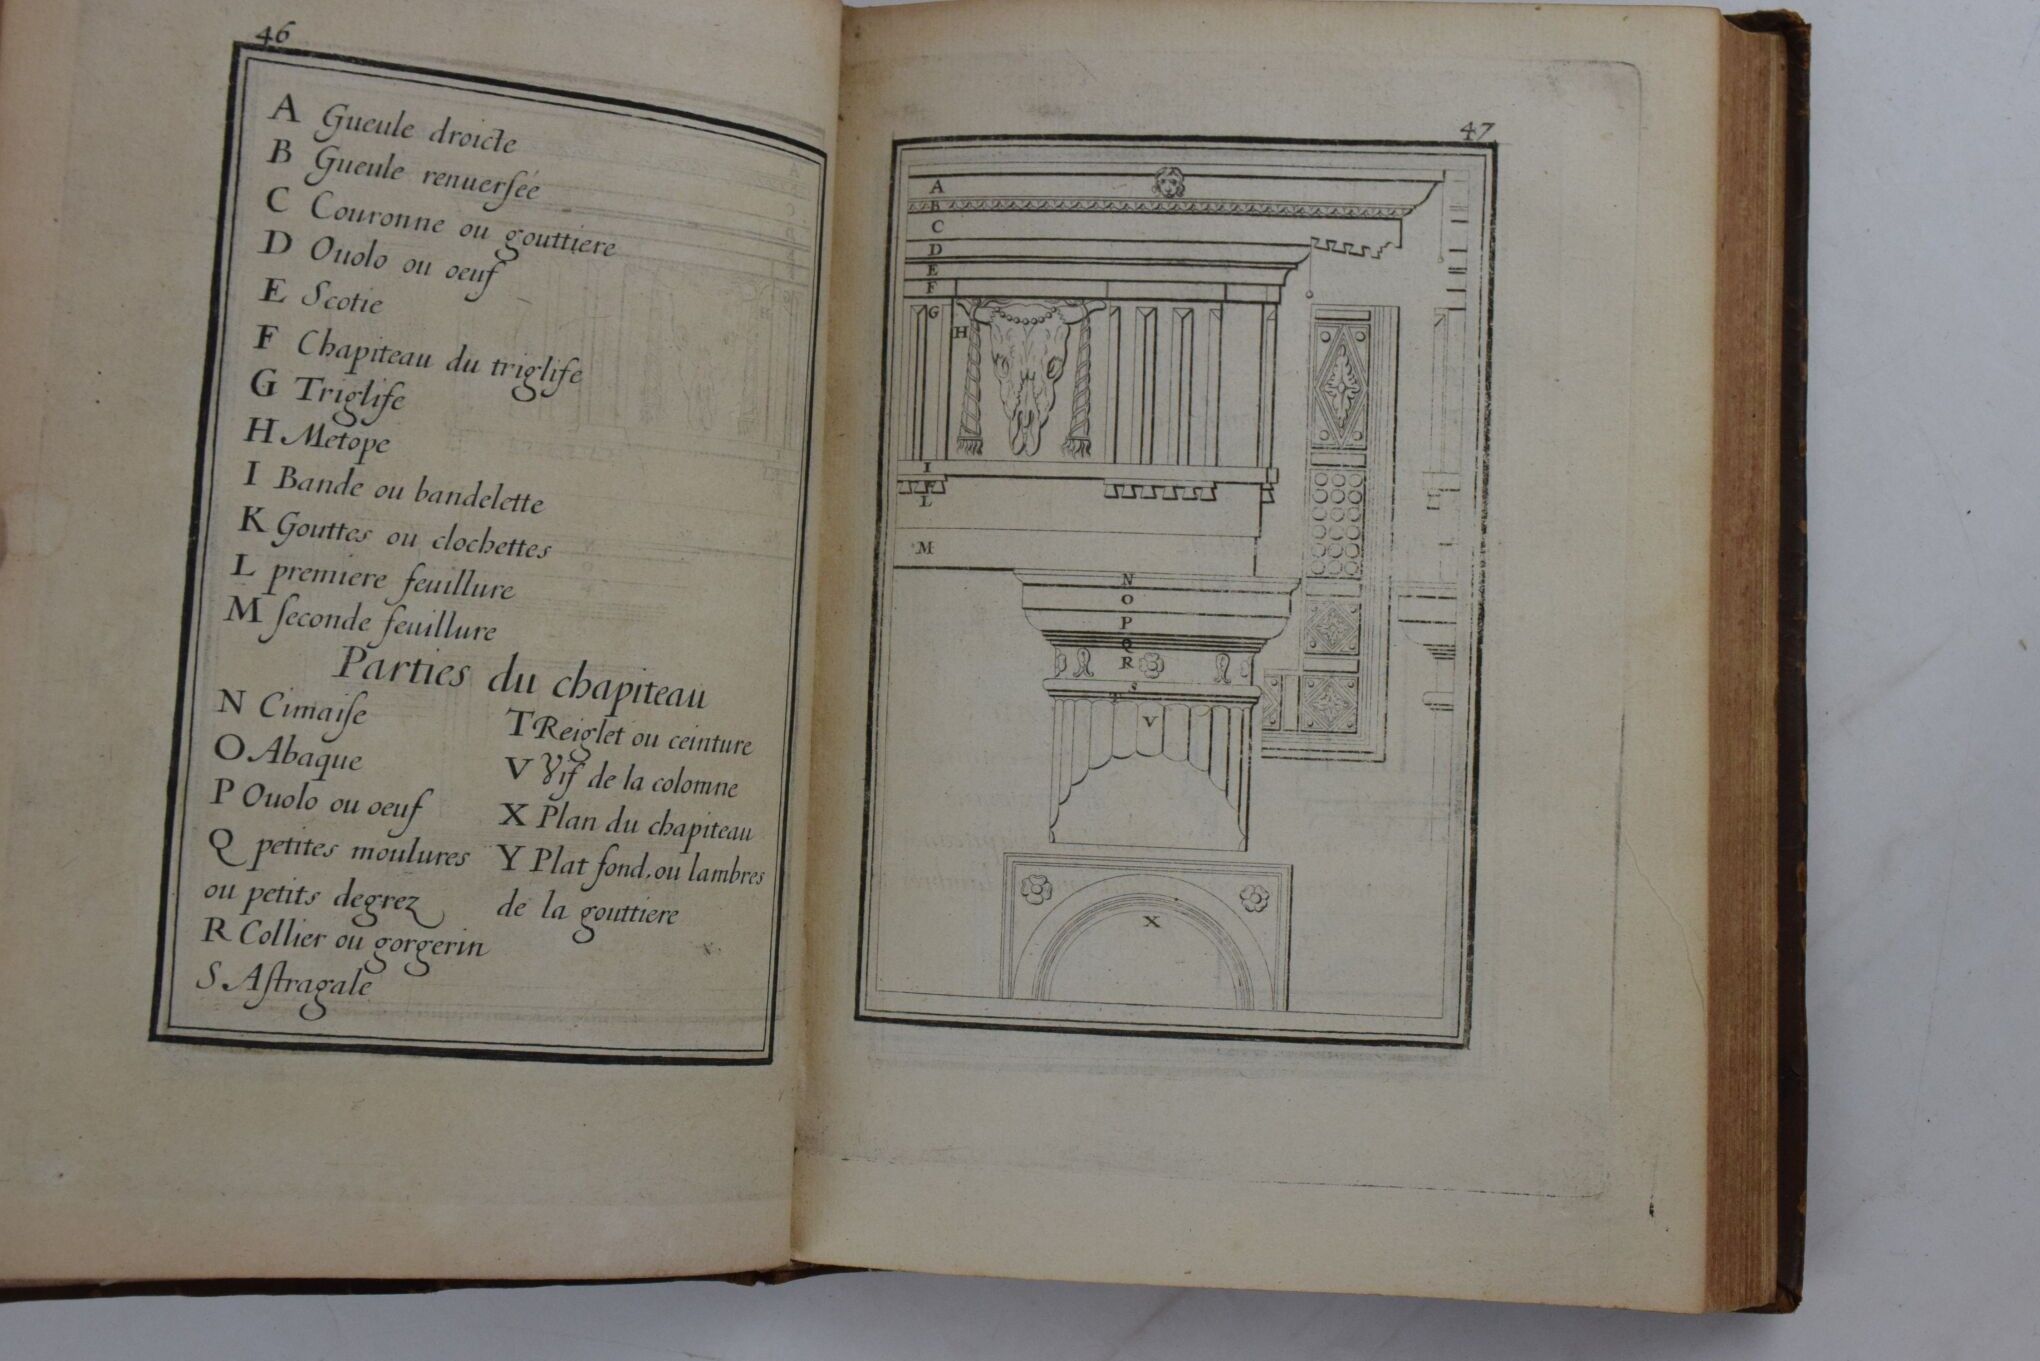 46
A Gueule droicte
B Gueule renuersée
C Couronne ou gouttiere
D Ouolo ou oeuf
E Scotie
F Chapiteau du triglife
G Triglife
H Metope
I Bande ou bandelette
K Gouttes ou clochettes
L premiere feuillure
M seconde feuillure
Parties du chapiteau
N Cimaise
O Abaque
P Ouolo ou oeuf
Q petites moulures
ou petits degrez
R Collier ou gorgerin
S Astragale
T Reiglet ou ceinture
V Vif de la colomne
X Plan du chapiteau
Y Plat fond, ou lambres
de la gouttiere
47
A
B
C
D
E
F
G
H
I
L
M
N
O
P
Q
R
S
T
V
X